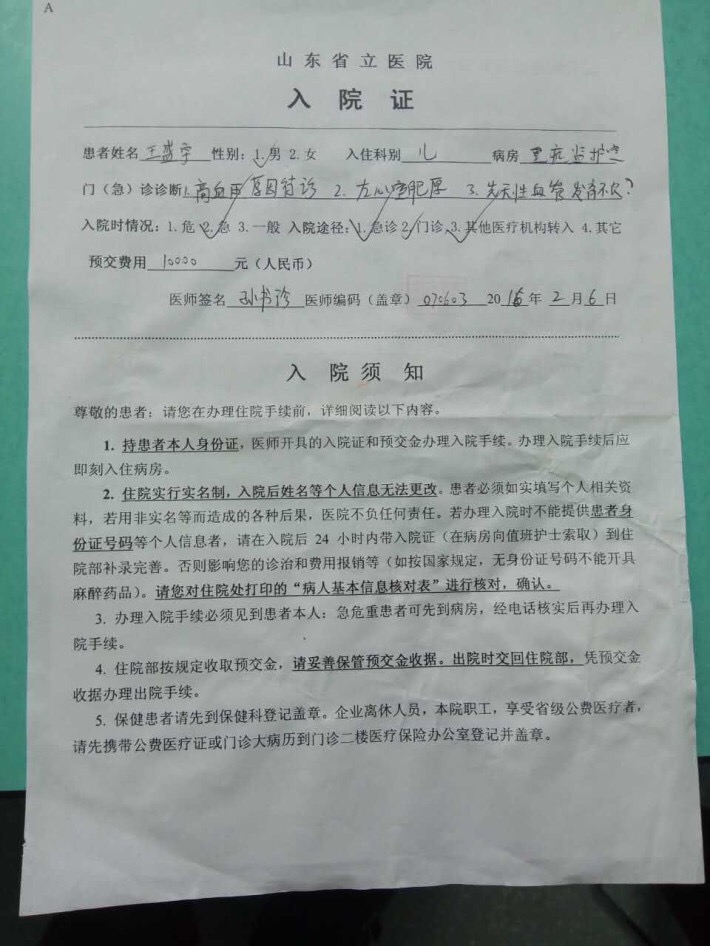 A
山东省立医院
入院证
患者姓名 王盛宇 性别：1.男 2.女 入住科别 儿 病房 重症监护室
门（急）诊诊断1.高血压原因待诊 2.左心室肥厚 3.先天性血管发育不良?
入院时情况：1.危 2.急 3.一般 入院途径：1.急诊 2.门诊 3.其他医疗机构转入 4.其它
预交费用 10000 元（人民币）
医师签名 孙书珍 医师编码（盖章）070603 2016年 2 月 6 日
入院须知
尊敬的患者：请您在办理住院手续前，详细阅读以下内容。
1. 持患者本人身份证，医师开具的入院证和预交金办理入院手续。办理入院手续后应
即刻入住病房。
2. 住院实行实名制，入院后姓名等个人信息无法更改。患者必须如实填写个人相关资
料，若用非实名等而造成的各种后果，医院不负任何责任。若办理入院时不能提供患者身
份证号码等个人信息者，请在入院后 24 小时内带入院证（在病房向值班护士索取）到住
院部补录完善。否则影响您的诊治和费用报销等（如按国家规定，无身份证号码不能开具
麻醉药品）。请您对住院处打印的“病人基本信息核对表”进行核对，确认。
3. 办理入院手续必须见到患者本人：急危重患者可先到病房，经电话核实后再办理入
院手续。
4. 住院部按规定收取预交金，请妥善保管预交金收据。出院时交回住院部，凭预交金
收据办理出院手续。
5. 保健患者请先到保健科登记盖章。企业离休人员，本院职工，享受省级公费医疗者，
请先携带公费医疗证或门诊大病历到门诊二楼医疗保险办公室登记并盖章。